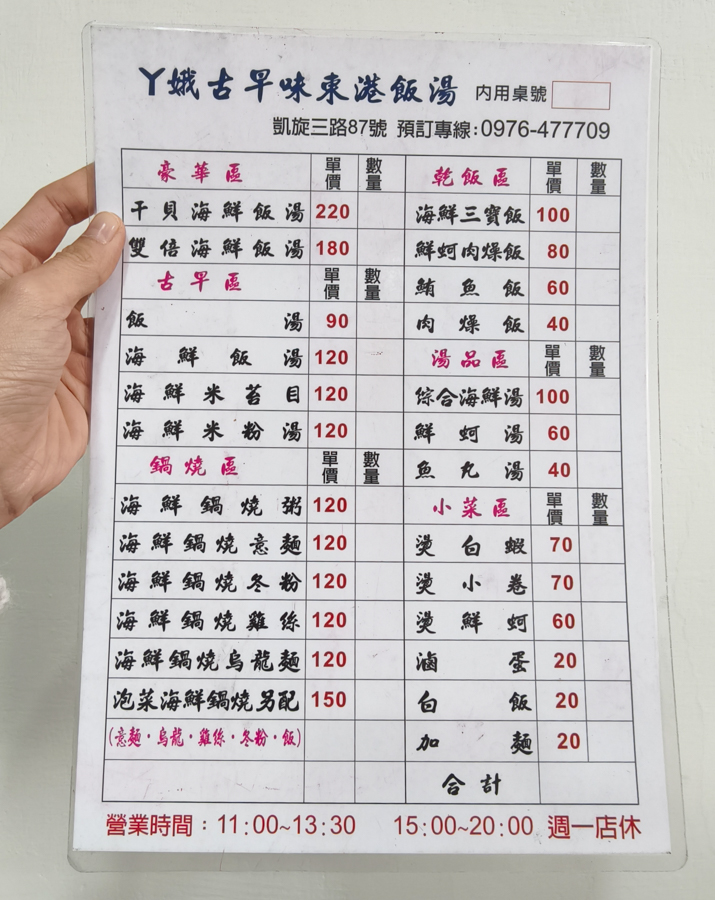 丫娥古早味東港飯湯 內用桌號
凱旋三路87號 預訂專線:0976-477709
豪華區 單價 數量
干貝海鮮飯湯 220
雙倍海鮮飯湯 180
古早區 單價 數量
飯湯 90
海鮮飯湯 120
海鮮米苔目 120
海鮮米粉湯 120
鍋燒區 單價 數量
海鮮鍋燒粥 120
海鮮鍋燒意麵 120
海鮮鍋燒冬粉 120
海鮮鍋燒雞絲 120
海鮮鍋燒烏龍麵 120
泡菜海鮮鍋燒另配 150
(意麵·烏龍·雞絲·冬粉·飯)
乾飯區 單價 數量
海鮮三寶飯 100
鮮蚵肉燥飯 80
鮪魚飯 60
肉燥飯 40
湯品區 單價 數量
綜合海鮮湯 100
鮮蚵湯 60
魚丸湯 40
小菜區 單價 數量
燙白蝦 70
燙小卷 70
燙鮮蚵 60
滷蛋 20
白飯 20
加麵 20
合計
營業時間:11:00~13:30 15:00~20:00 週一店休